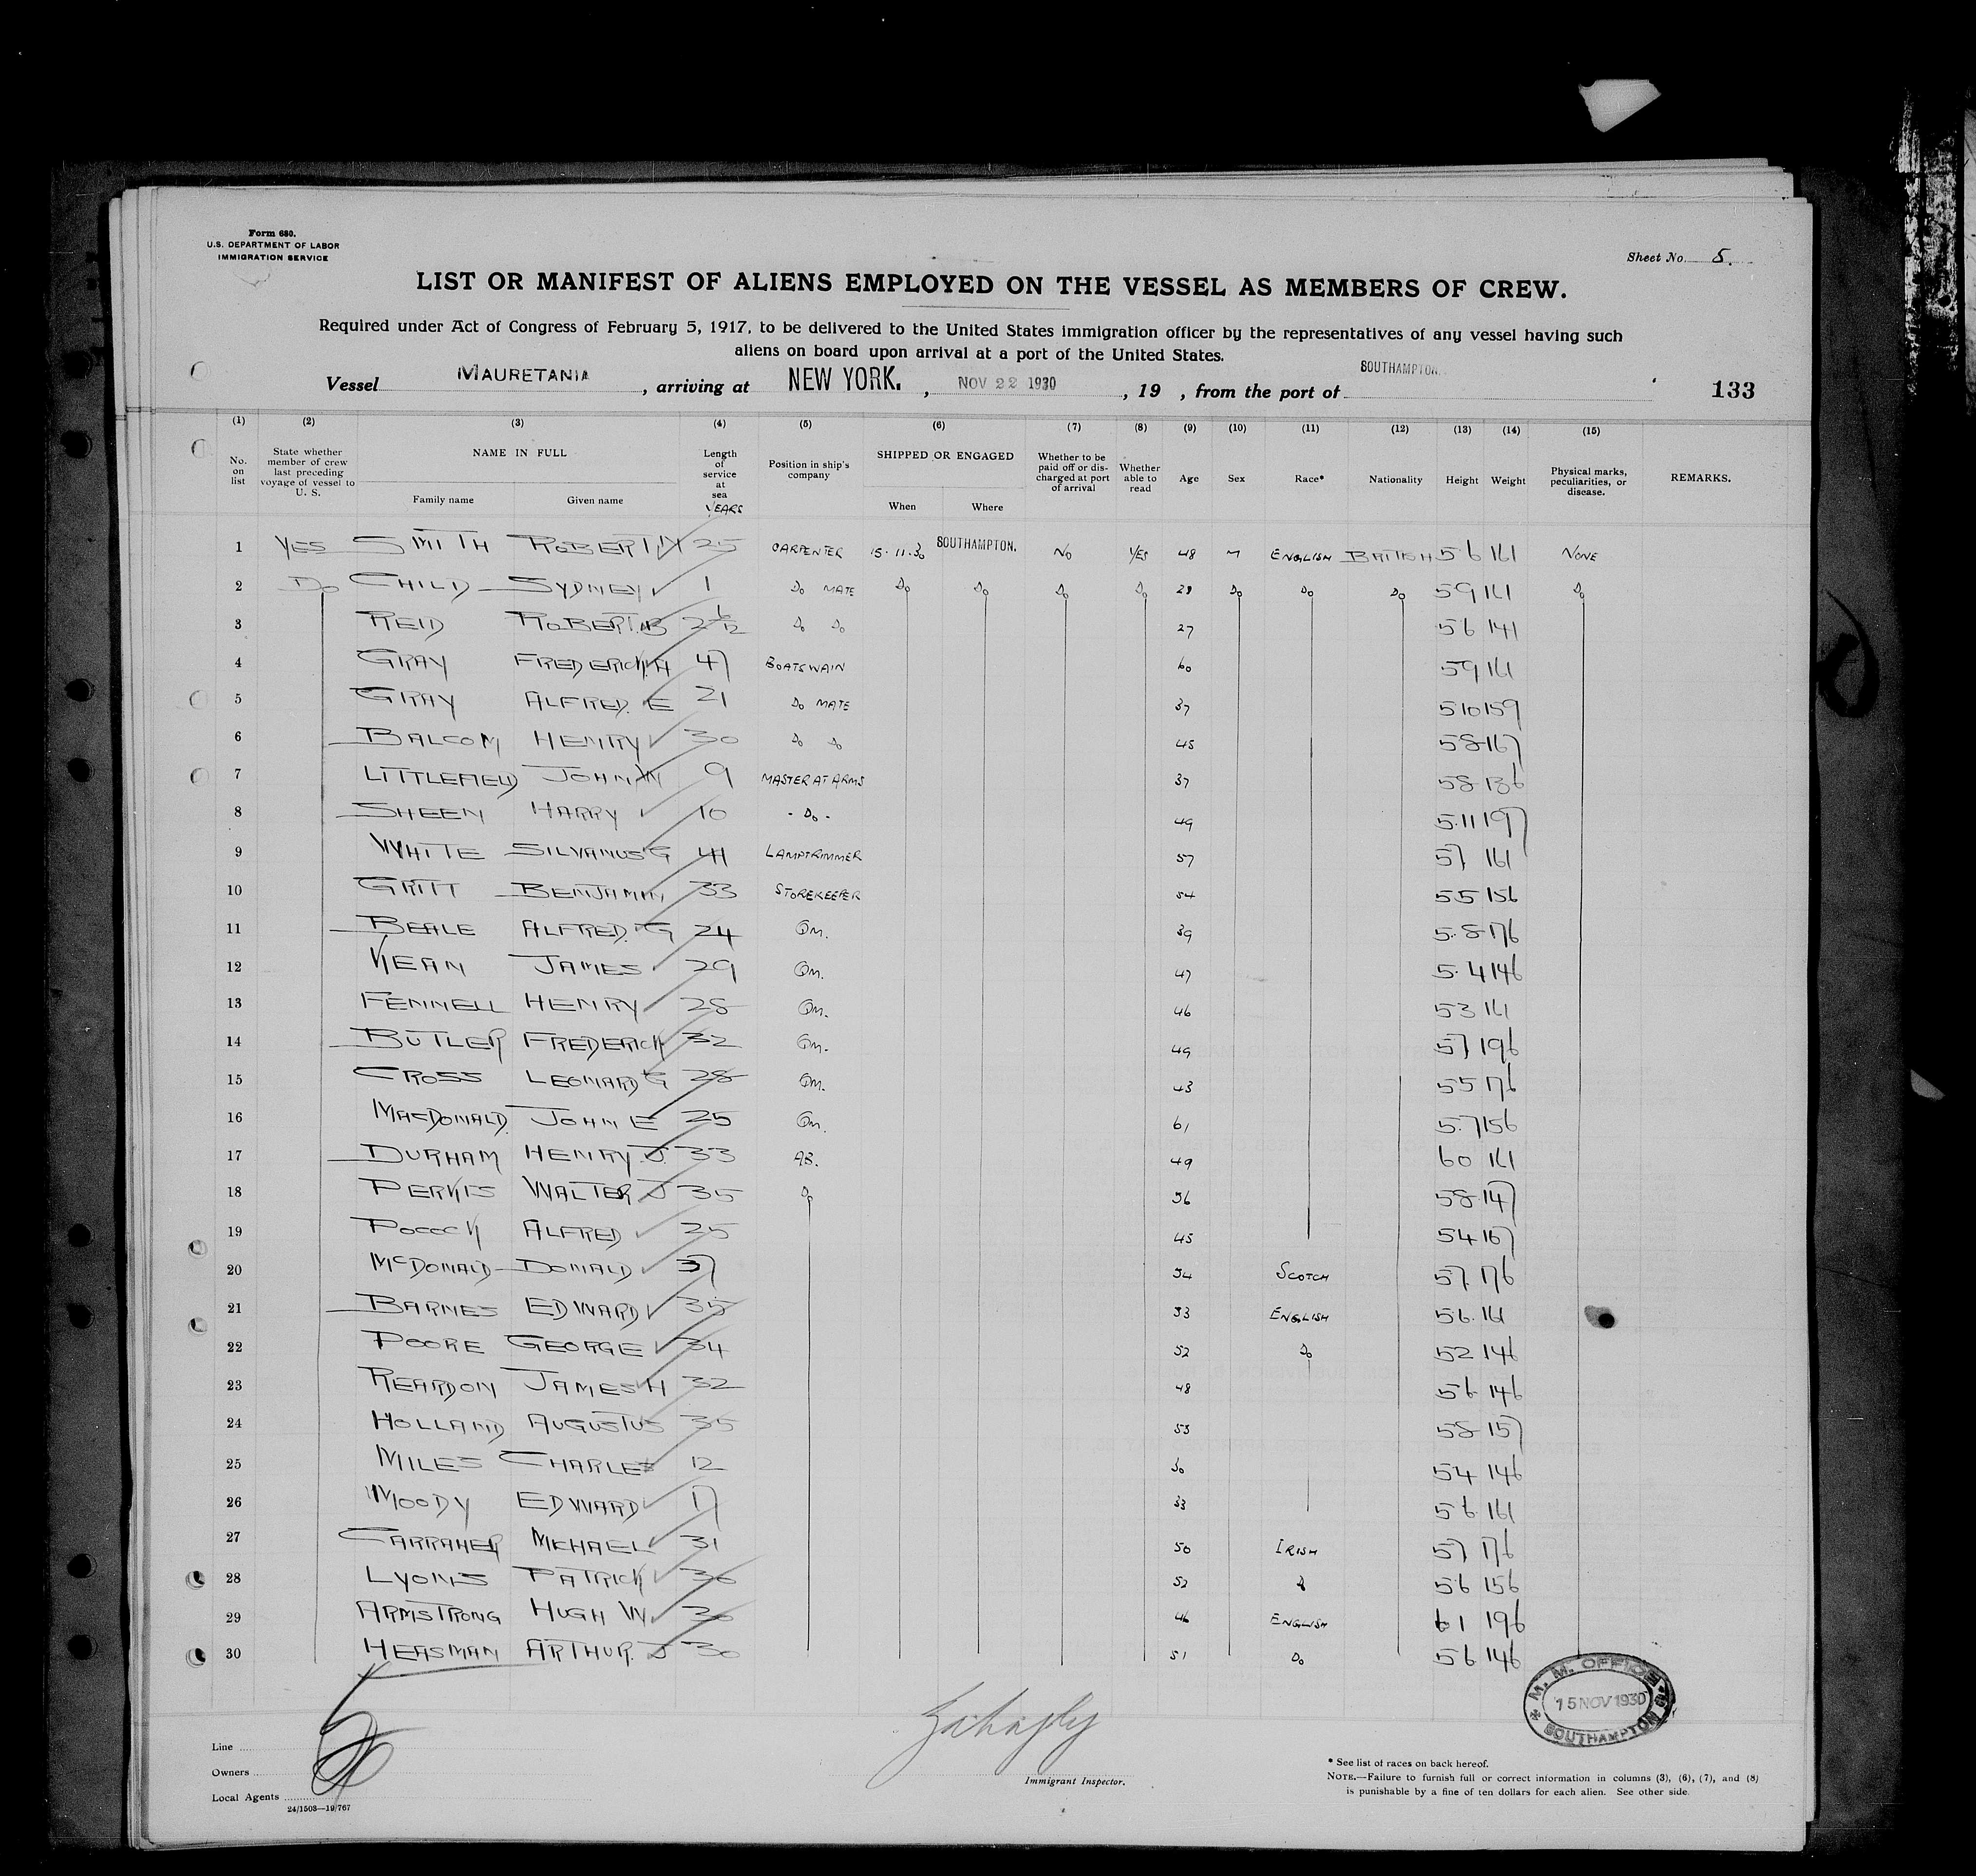 Form 680.
U.S. DEPARTMENT OF LABOR
IMMIGRATION SERVICE
Sheet No. 5.
LIST OR MANIFEST OF ALIENS EMPLOYED ON THE VESSEL AS MEMBERS OF CREW.
Required under Act of Congress of February 5, 1917, to be delivered to the United States immigration officer by the representatives of any vessel having such
aliens on board upon arrival at a port of the United States.
Vessel MAURETANIA, arriving at NEW YORK., NOV 22 1930, 19 , from the port of SOUTHAMPTON. 133
(1) (2) (3) (4) (5) (6) (7) (8) (9) (10) (11) (12) (13) (14) (15)
No. on list State whether member of crew last preceding voyage of vessel to U. S. NAME IN FULL Family name Given name Length of service at sea YEARS Position in ship's company SHIPPED OR ENGAGED When Where Whether to be paid off or discharged at port of arrival Whether able to read Age Sex Race* Nationality Height Weight Physical marks, peculiarities, or disease. REMARKS.
1 YES SMITH ROBERT 25 CARPENTER 15.11.30 SOUTHAMPTON. NO YES 48 M ENGLISH BRITISH 5 6 161 NONE
2 Do CHILD SYDNEY 1 Do MATE Do Do Do Do 29 Do Do Do 5 9 161 Do
3 REID ROBERT B Do Do 27 5 6 141
4 GRAY FREDERICK H 47 BOATSWAIN 60 5 9 161
5 GRAY ALFRED. E 21 Do MATE 37 5 10 159
6 BALCOM HENRY 30 Do Do 45 5 8 167
7 LITTLEFIELD JOHN W 9 MASTER AT ARMS 37 5 8 136
8 SHEEN HARRY 10 - Do - 49 5.11 197
9 WHITE SILVANUS G 41 LAMPTRIMMER 57 5 7 161
10 GRITT BENJAMIN 33 STOREKEEPER 54 5 5 156
11 BEALE ALFRED. G 24 QM. 39 5.8 176
12 KEAN JAMES 29 QM. 47 5.4 146
13 FENNELL HENRY 28 QM. 46 5 3 161
14 BUTLER FREDERICK 32 QM. 49 5 7 196
15 CROSS LEONARD G 28 QM. 43 5 5 176
16 MACDONALD. JOHN E 25 QM. 61 5.7 156
17 DURHAM HENRY J. 33 AB. 49 6 0 161
18 PERKIS WALTER J 35 Do 56 5 8 147
19 POCOCK ALFRED 25 45 5 4 167
20 McDONALD DONALD 37 54 SCOTCH 5 7. 176
21 BARNES EDWARD 35 53 ENGLISH 5 6. 161
22 POORE GEORGE 34 52 Do 5 2 146
23 REARDON JAMES H 32 48 5 6 146
24 HOLLAND AUGUSTUS 35 53 5 8 157
25 MILES CHARLES 12 30 5 4 146
26 MOODY EDWARD 17 33 5 6. 161
27 CARRAHER MICHAEL 31 50 IRISH 5 7 176
28 LYONS PATRICK 36 52 Do 5 6 156
29 ARMSTRONG HUGH W. 30 46 ENGLISH 6 1 196
30 HEASMAN ARTHUR. J 30 51 Do 5 6 146
M. M. OFFICE
15 NOV 1930
SOUTHAMPTON
Line
Owners
Local Agents
24/1503—19/767
Immigrant Inspector.
* See list of races on back hereof.
NOTE.—Failure to furnish full or correct information in columns (3), (6), (7), and (8)
is punishable by a fine of ten dollars for each alien. See other side.